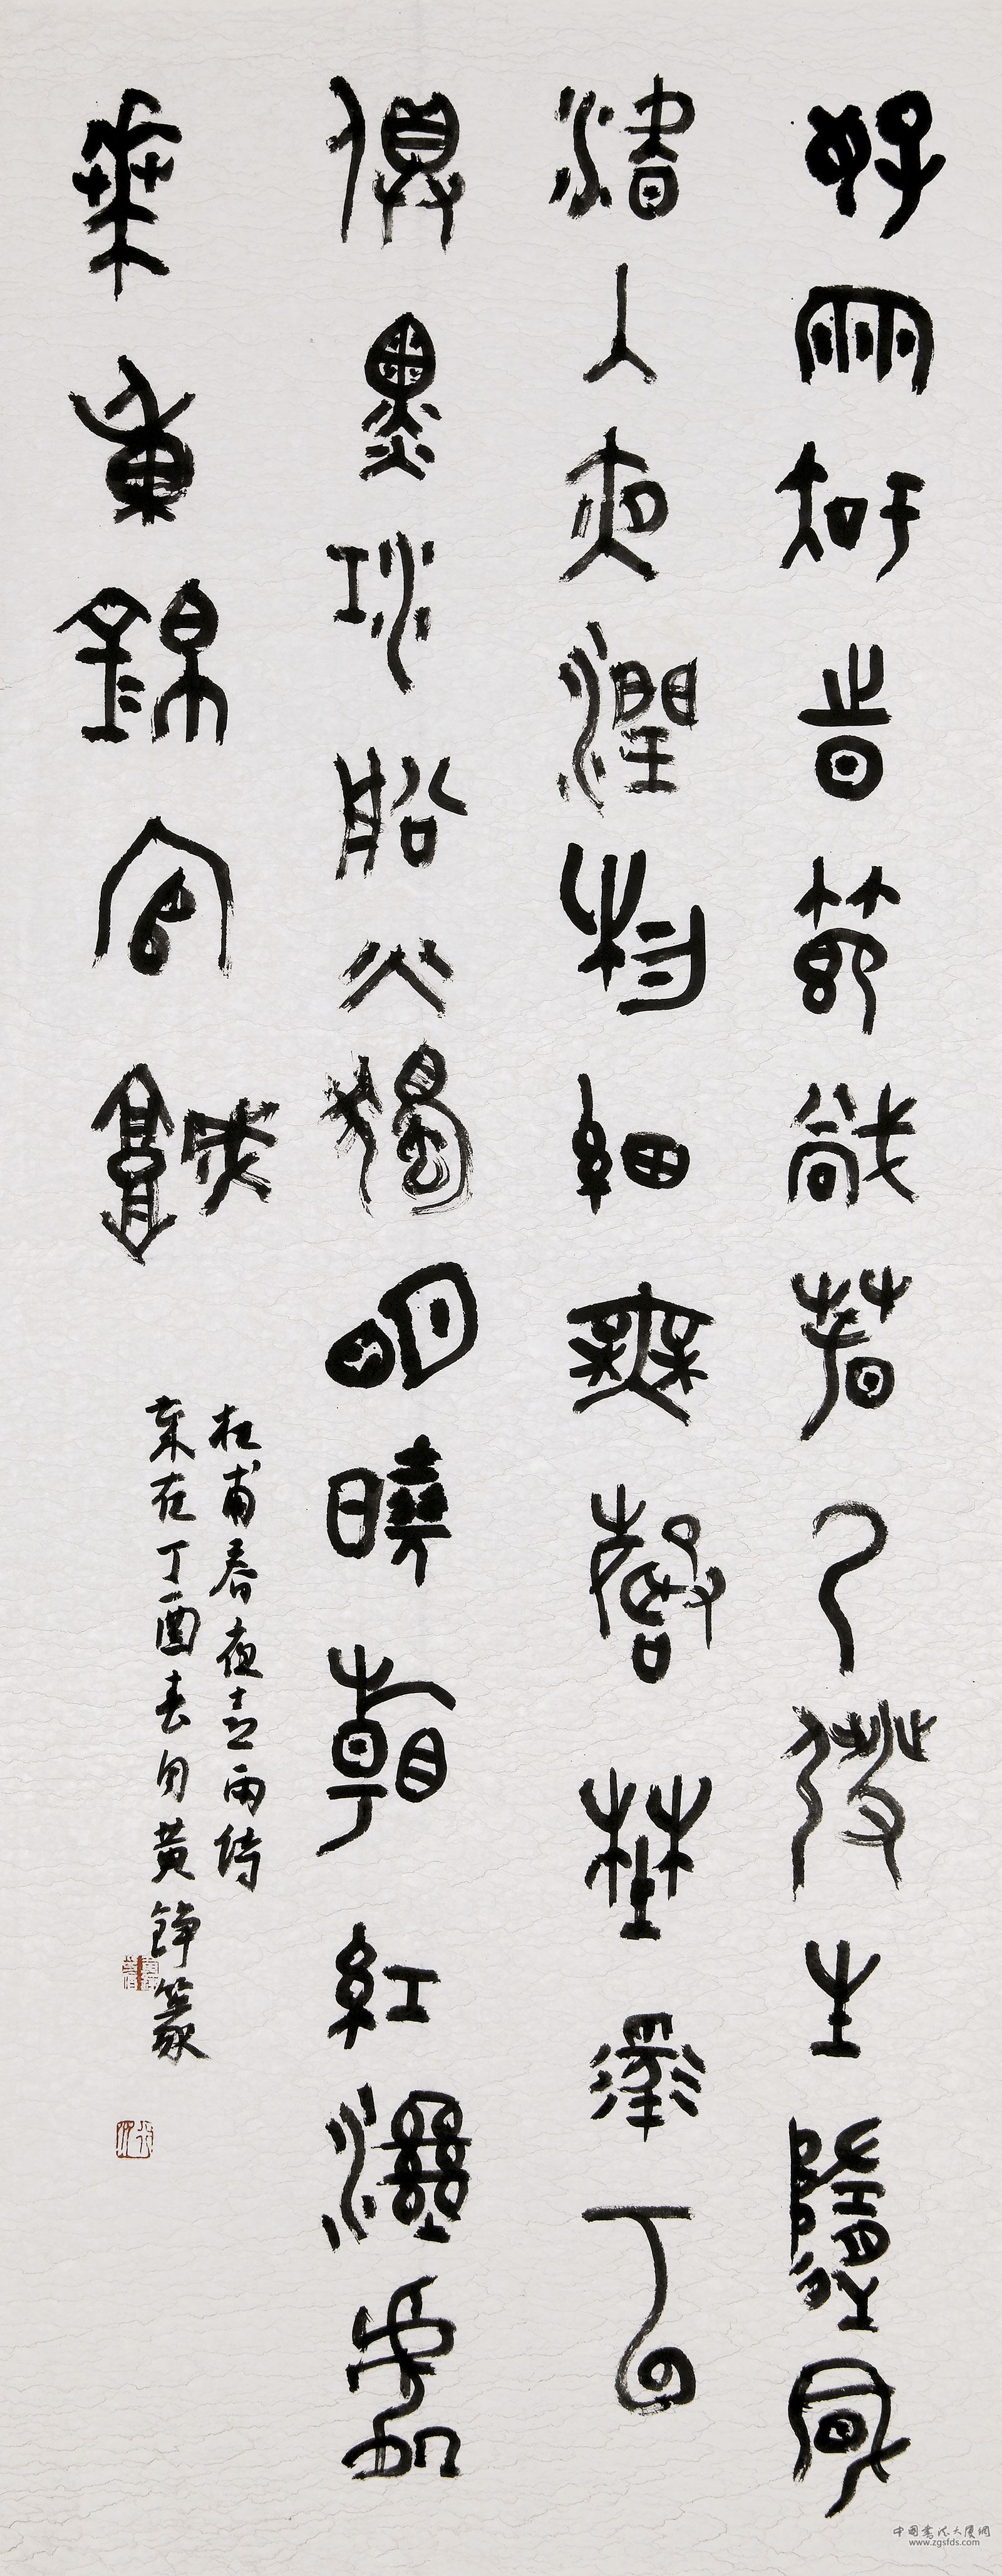 好雨知旹節當春乃發生隨風
潛入夜潤物細無聲埜徑云
俱黑江船火獨明曉看紅濕處
花重錦官城
杜甫春夜喜雨詩
歲在丁酉春月黃錚篆
中國書法大廈網
www.zgsfds.com